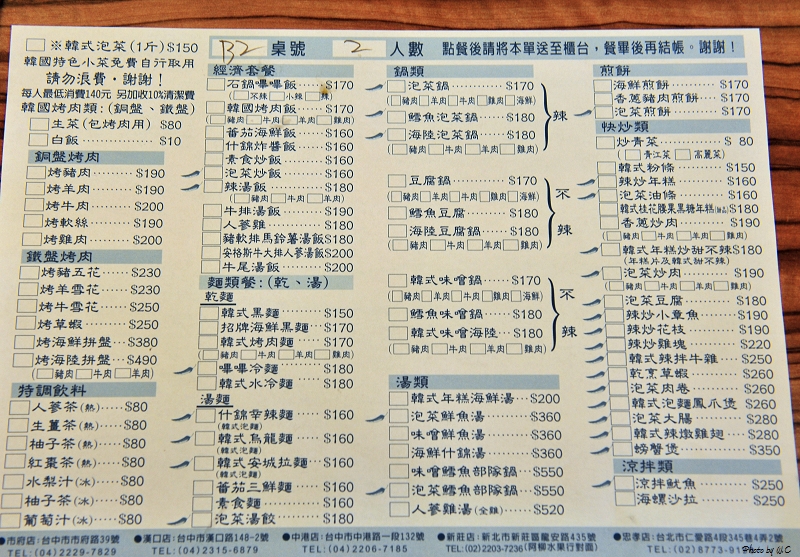 ※韓式泡菜(1斤)$150
韓國特色小菜免費自行取用
請勿浪費，謝謝！
每人最低消費140元 另加收10%清潔費
韓國烤肉類:(銅盤、鐵盤)
生菜(包烤肉用) $80
白飯 $10
銅盤烤肉
烤豬肉 $190
烤羊肉 $190
烤牛肉 $200
烤軟絲 $190
烤雞肉 $200
鐵盤烤肉
烤豬五花 $230
烤羊雪花 $230
烤牛雪花 $250
烤草蝦 $250
烤海鮮拼盤 $380
烤海陸拼盤 $490
(豬肉 牛肉 羊肉 雞肉)
特調飲料
人蔘茶(熱) $80
生薑茶(熱) $80
柚子茶(熱) $80
紅棗茶(熱) $80
水梨汁(冰) $80
柚子茶(冰) $80
葡萄汁(冰) $80
B2 桌號 2 人數 點餐後請將本單送至櫃台，餐畢後再結帳。謝謝！
經濟套餐
石鍋嗶嗶飯 $170
(不辣 小辣 辣)
韓國烤肉飯 $170
(豬肉 牛肉 羊肉 雞肉)
番茄海鮮飯 $160
什錦炸醬飯 $160
素食炒飯 $160
泡菜炒飯 $160
辣湯飯 $180
(豬肉 牛肉 羊肉 雞肉)
牛排湯飯 $190
人蔘雞 $180
豬軟排馬鈴薯湯飯 $180
安格斯牛大排人蔘湯飯 $200
牛尾湯飯 $200
麵類餐:(乾、湯)
乾麵
韓式黑麵 $150
招牌海鮮黑麵 $170
韓式烤肉麵 $170
(豬肉 牛肉 羊肉 雞肉)
嗶嗶冷麵 $180
韓式水冷麵 $180
湯麵
什錦辛辣麵 $160
(韓式泡麵)
韓式烏龍麵 $160
(韓式泡麵)
韓式安城拉麵 $160
(韓式泡麵)
番茄三鮮麵 $160
素食麵 $160
泡菜湯餃 $180
鍋類
泡菜鍋 $170
(豬肉 牛肉 羊肉 雞肉 海鮮)
鱈魚泡菜鍋 $180
海陸泡菜鍋 $180
(豬肉 牛肉 羊肉 雞肉)
辣
豆腐鍋 $170
(豬肉 牛肉 羊肉 雞肉 海鮮)
鱈魚豆腐 $180
海陸豆腐鍋 $180
(豬肉 牛肉 羊肉 雞肉)
不辣
韓式味噌鍋 $170
(豬肉 牛肉 羊肉 雞肉 海鮮)
鱈魚味噌鍋 $180
韓式味噌海陸 $180
(豬肉 牛肉 羊肉 雞肉)
不辣
湯類
韓式年糕海鮮湯 $200
泡菜鮮魚湯 $360
味噌鮮魚湯 $360
海鮮什錦湯 $360
味噌鱈魚部隊鍋 $550
泡菜鱈魚部隊鍋 $550
人蔘雞湯(全雞) $520
煎餅
海鮮煎餅 $170
香蔥豬肉煎餅 $170
泡菜煎餅 $170
快炒類
炒青菜 $ 80
(青江菜 高麗菜)
韓式粉條 $150
辣炒年糕 $160
泡菜油條 $160
韓式桂花腰果黑糖年糕 $180
香蔥炒肉 $190
(豬肉 牛肉 羊肉 雞肉)
韓式年糕炒甜不辣 $180
(年糕片及韓式甜不辣)
泡菜炒肉 $190
(豬肉 牛肉 羊肉 雞肉)
泡菜豆腐 $180
辣炒小章魚 $190
辣炒花枝 $190
辣炒雞塊 $220
韓式辣拌牛雜 $250
乾烹草蝦 $260
泡菜肉卷 $260
韓式泡麵鳳爪煲 $260
泡菜大腸 $280
韓式辣燉雞翅 $280
螃蟹煲 $350
涼拌類
涼拌魷魚 $250
海螺沙拉 $250
●市府店:台中市市府路39號
TEL:(04)2229-7829
●漢口店:台中市漢口路148-2號
TEL:(04)2315-6879
●中港店:台中市中港路一段132號
TEL:(04)2206-7185
●新莊店:新北市新莊區龍安路435號
TEL:(02)2203-7236(阿柳水果行對面)
●忠孝店:台北市仁愛路4段345巷4弄2號
TEL:(02)8773-91
Photo by W.C